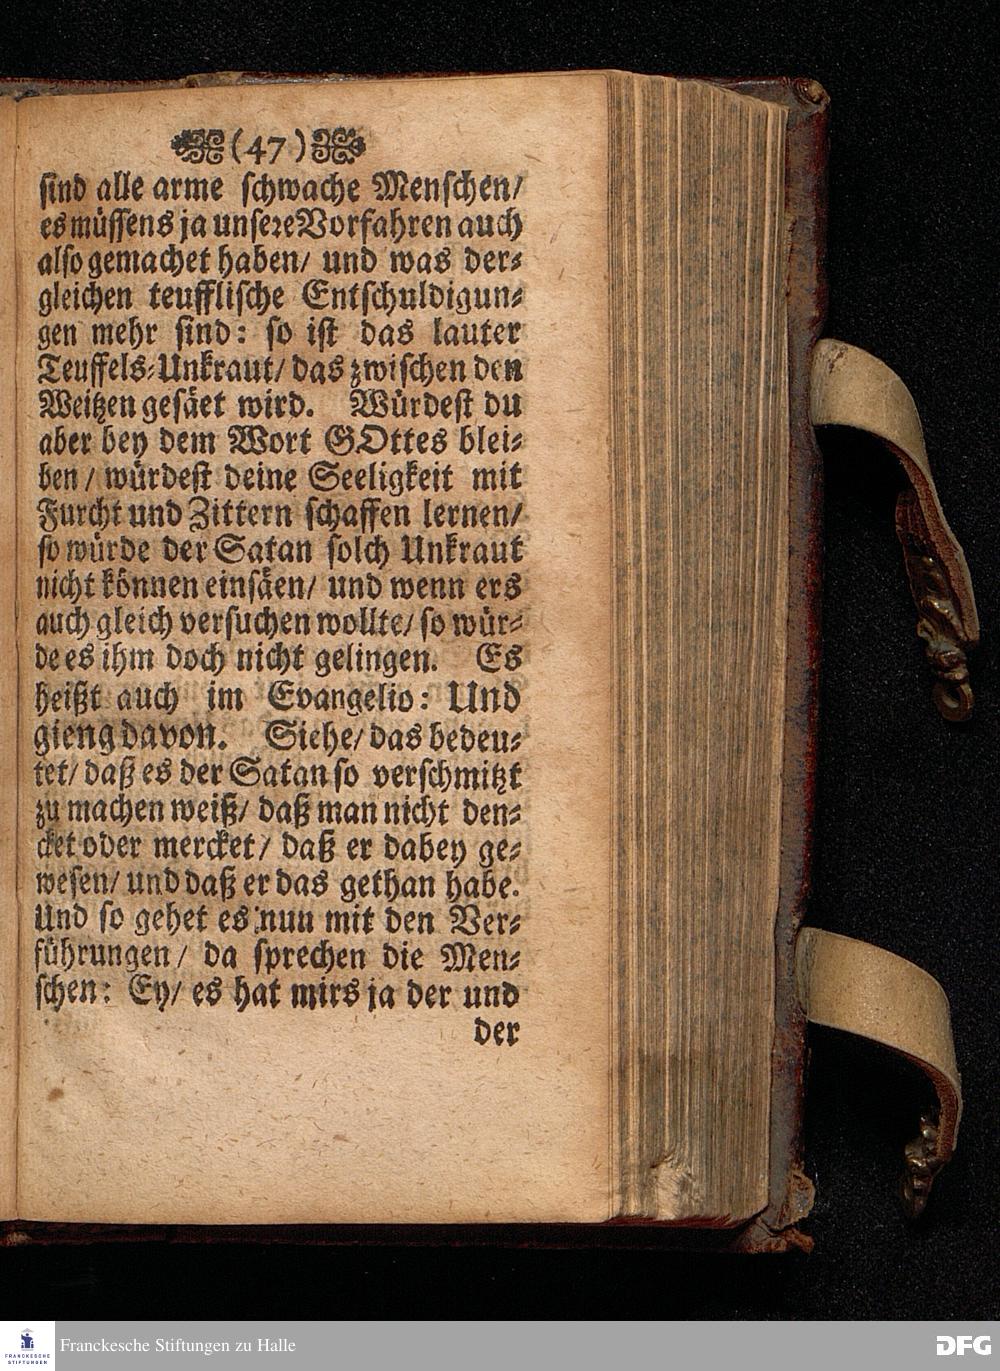 (47)
sind alle arme schwache Menschen/
es müssens ja unsere Vorfahren auch
also gemachet haben/ und was der-
gleichen teufflische Entschuldigun-
gen mehr sind: so ist das lauter
Teuffels-Unkraut/ das zwischen den
Weitzen gesäet wird. Würdest du
aber bey dem Wort GOttes blei-
ben/ würdest deine Seeligkeit mit
Furcht und Zittern schaffen lernen/
so würde der Satan solch Unkraut
nicht können einsäen/ und wenn ers
auch gleich versuchen wollte/ so wür-
de es ihm doch nicht gelingen. Es
heißt auch im Evangelio: Und
gieng davon. Siehe/ das bedeu-
tet/ daß es der Satan so verschmitzt
zu machen weiß/ daß man nicht den-
cket oder mercket/ daß er dabey ge-
wesen/ und daß er das gethan habe.
Und so gehet es nun mit den Ver-
führungen/ da sprechen die Men-
schen: Ey/ es hat mirs ja der und
der
FRANCKESCHE
STIFTUNGEN
Franckesche Stiftungen zu Halle
DFG